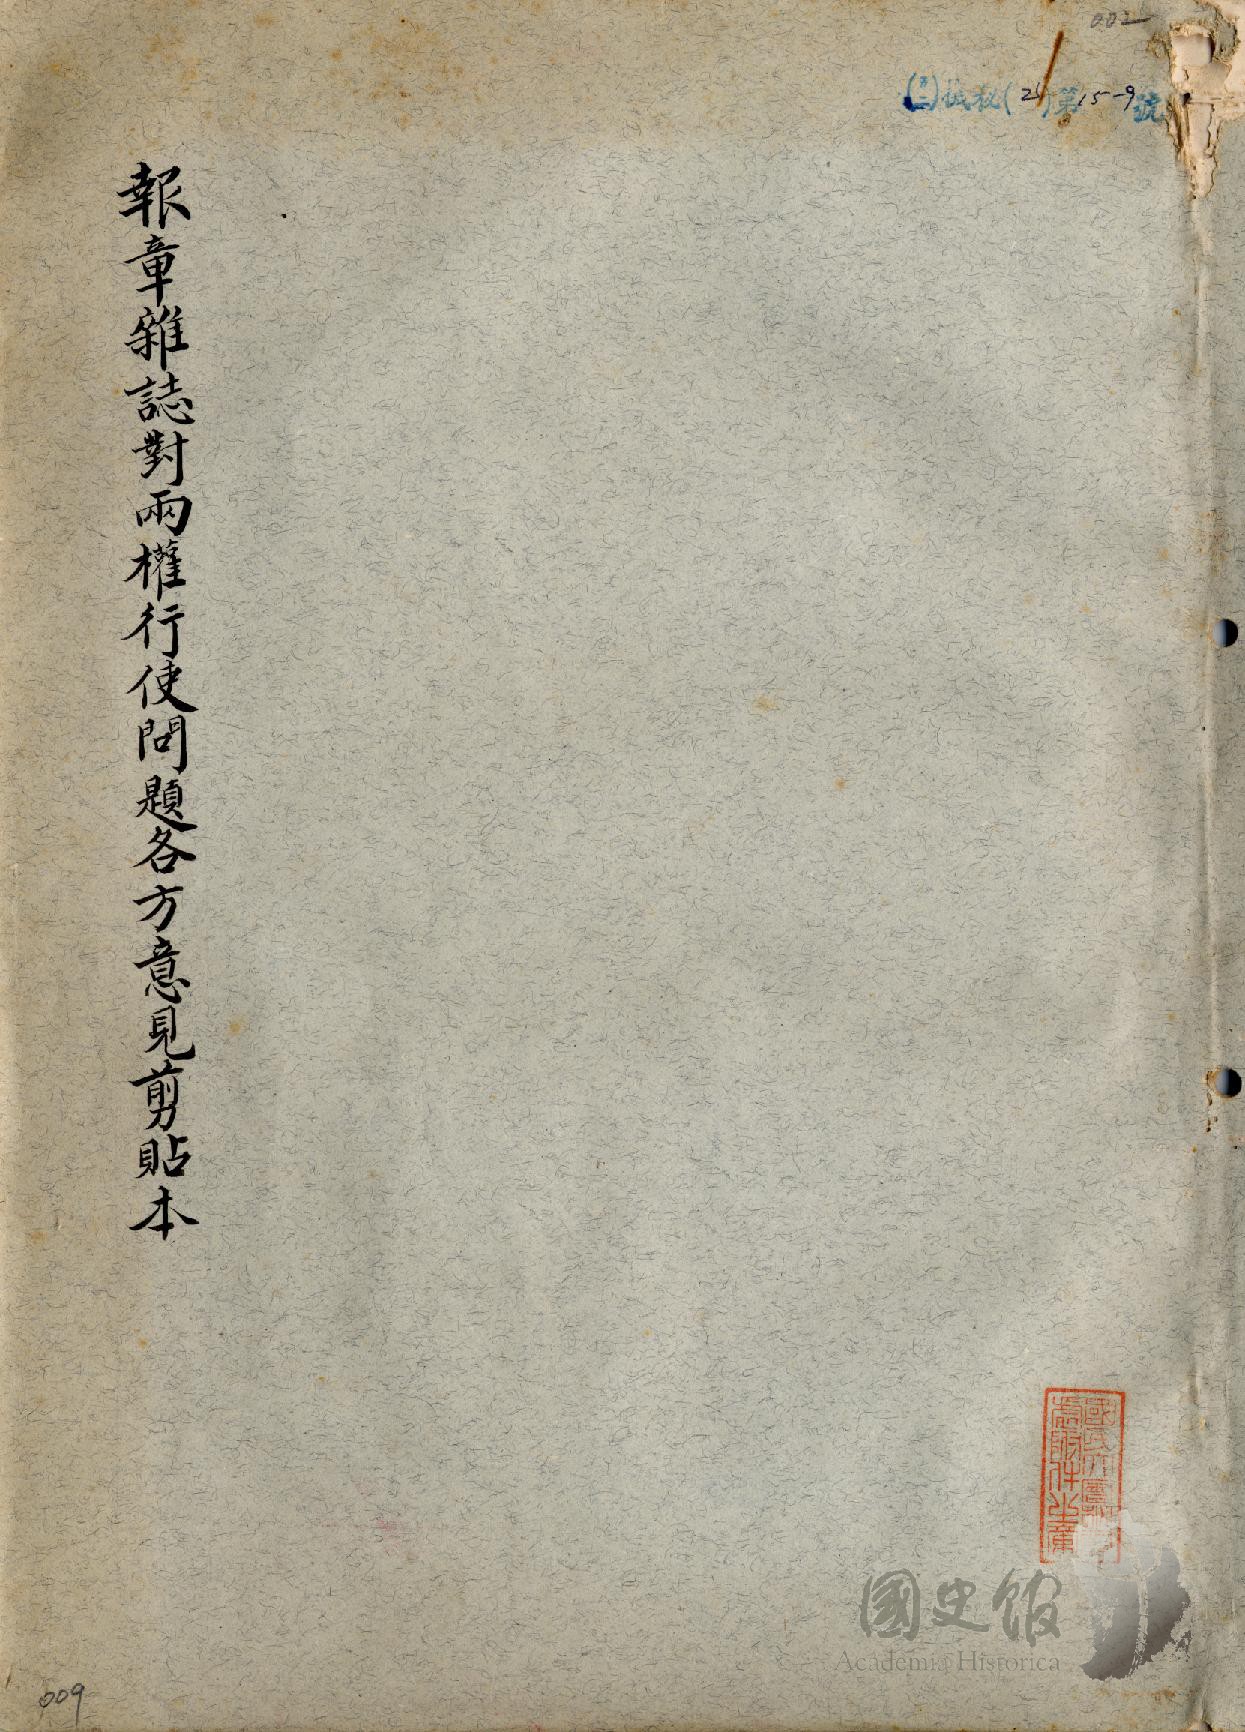 002
(二)機秘(21)第15-9號
報章雜誌對兩權行使問題各方意見剪貼本
國史館
Academia Historica
009